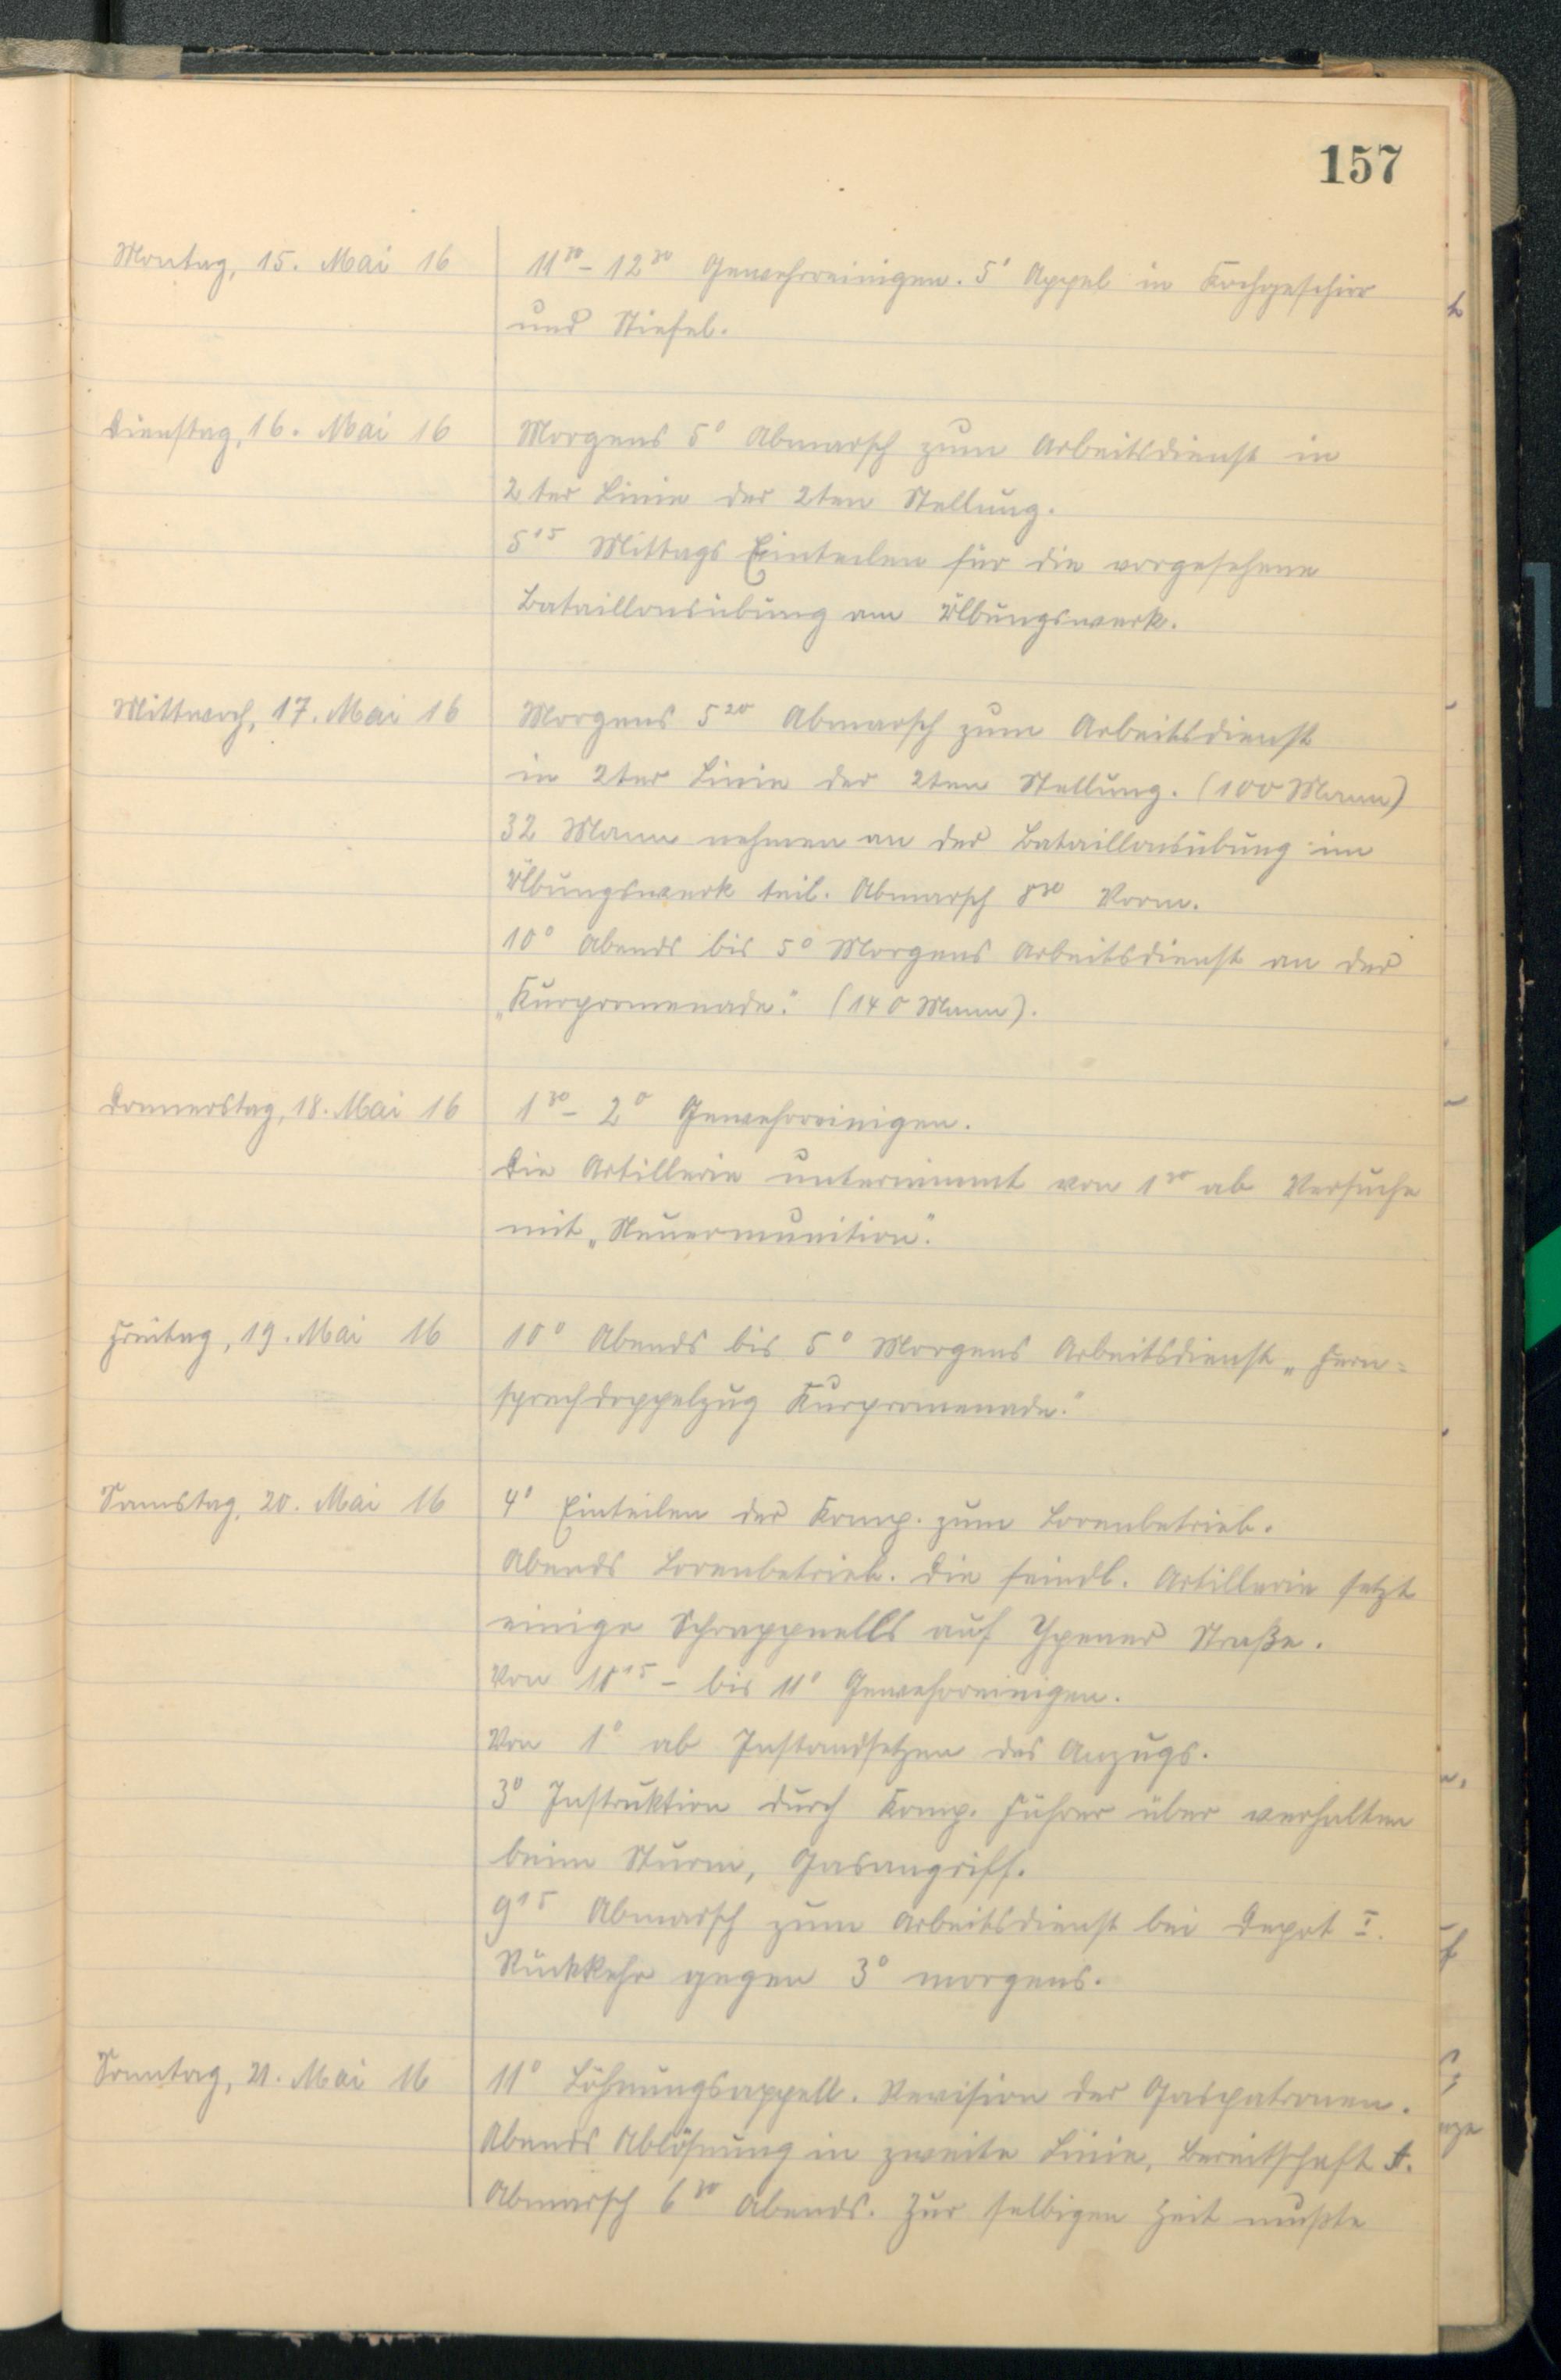 157
Montag, 15. Mai 16
11³⁰ - 12³⁰ Gewehrreinigen. 5⁰ Appel in Kochgeschirr
und Stiefel.
Dienstag, 16. Mai 16
Morgens 5⁰ Abmarsch zum Arbeitsdienst in
2ter Linie der 2ten Stellung.
5¹⁵ Mittags Einteilen für die vorgesehene
Bataillonsübung am Übungswerk.
Mittwoch, 17. Mai 16
Morgens 5²⁰ Abmarsch zum Arbeitsdienst
in 2ter Linie der 2ten Stellung. (100 Mann)
32 Mann nehmen an der Bataillonsübung im
Übungswerk teil. Abmarsch 8³⁰ Vorm.
10⁰ Abends bis 5⁰ Morgens Arbeitsdienst an der
„Kurpromenade." (140 Mann).
Donnerstag, 18. Mai 16
1³⁰ - 2⁰ Gewehrreinigen.
Die Artillerie unternimmt von 1³⁰ ab Versuche
mit „Steuermunition".
Freitag, 19. Mai 16
10⁰ Abends bis 5⁰ Morgens Arbeitsdienst „Fern=
sprechdoppelzug Kurpromenade."
Samstag, 20. Mai 16
4⁰ Einteilen der Komp. zum Lorenbetrieb.
Abends Lorenbetrieb. Die feindl. Artillerie setzt
einige Schrappnells auf Ypener Straße.
Von 10¹⁵ - bis 11⁰ Gewehrreinigen.
Von 1⁰ ab Instandsetzen des Anzugs.
3⁰ Instruktion durch Komp. Führer über verhalten
beim Sturm, Gasangriff.
9¹⁵ Abmarsch zum Arbeitsdienst bei Depot I.
Rückkehr gegen 3⁰ morgens.
Sonntag, 21. Mai 16
11⁰ Löhnungsappell. Revision der Gaspatronen.
Abends Ablösung in zweite Linie, Bereitschaft A.
Abmarsch 6³⁰ Abends. Zur selbigen Zeit mußte